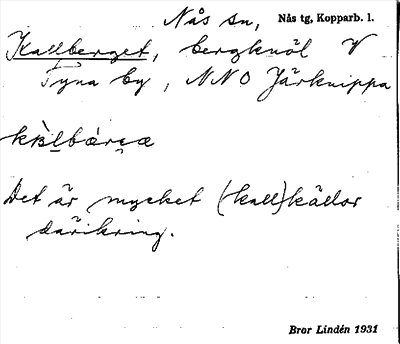 Nås sn, Nås tg, Kopparb. l.
Kallberget, bergknöl V
Tyna by, NNO Järknippa
Det är mycket (kall)källor
däri kring.
Bror Lindén 1931